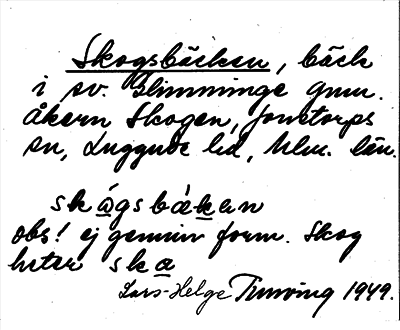 Skogsbäcken, bäck
i sv. Glimminge gnm.
åkern Skogen, Jonstorps
sn, Luggude hd, Mlm. län.
skɷ́gsbäkan
obs! ej genuin form. Skog
heter ska
Lars-Helge Tunving 1949.